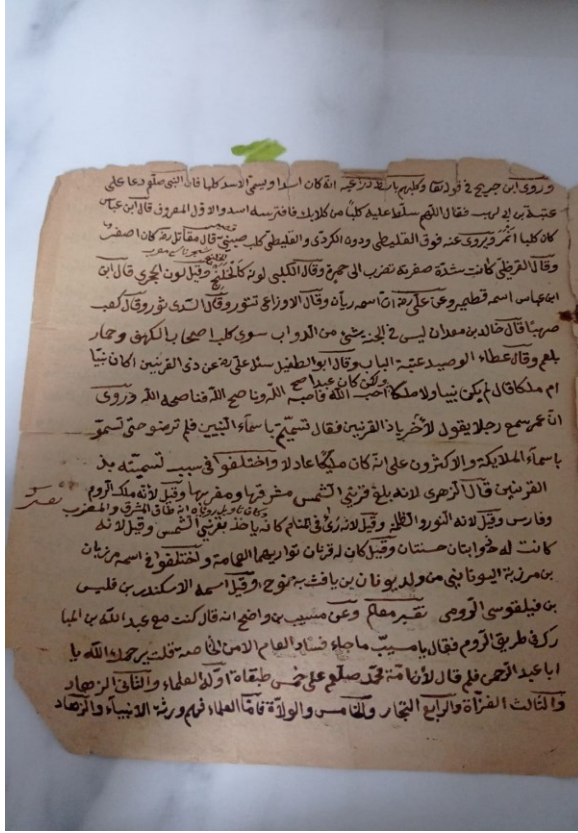 وروى ابن جريج في قوله تعا وكلبهم باسط ذراعيه انه كان اسدا ويسمى الاسد كلبا فان النبي صلعم دعا على
عتبة بن ابي لهب فقال اللهم سلط عليه كلبا من كلابك فافترسه اسد والاول المعروف قال ابن عباس
كان كلبا انمر ويروى عنه فوق القلطي ودون الكردي والقلطي كلب صيني قال مقاتل رضه كان اصفر
وقال القرظي كانت شدة صفرته تضرب الى حمرة وقال الكلبي لونه كالخلنج وقيل لون الحجر قال ابن
ابن عباس اسمه قطمير وعن علي رضه ان اسمه ريان وقال الاوزاعي تتور وقال السدي ثور وقال كعب
صهبا قال خالد بن معدان ليس في الجنة شئ من الدواب سوى كلب اصحاب الكهف وحمار
بلعم وقال عطاء الوصيد عتبة الباب وقال ابو الطفيل سئل علي رضه عن ذى القرنين اكان نبيا
ام ملكا قال لم يكن نبيا ولا ملكا ولكن كان عبدا صالح احب الله فاحبه الله وناصح الله فناصحه الله وروى
ان عمر سمع رجلا يقول لآخر ياذا القرنين فقال تسميتم باسماء النبيين فلم ترضو حتى تسمو
باسماء الملايكة والاكثرون على انه كان ملكا عادلا واختلفو في سبب تسميته بذ
القرنين قال الزهرى لانه بلغ قرني الشمس مشرقها ومغربها وقيل لأنه ملك الروم
وفارس وقيل لانه النور والظلمه وقيل لانه رئ في المنام كانه ياخذ بقرني الشمس وقيل لانه
وكان تاويل روياه انه طاف المشرق والمغرب
كانت له ذوابتان حسنتان وقيل كان له قرنان تواريهما العمامة واختلفو في اسمه مرزبان
بن مرزبة اليوناني من ولد يونان بن يافث بن نوح وقيل اسمه الاسكندر بن فليس
بن فيلقوسى الرومى وعن مسيب بن واضح انه قال كنت مع عبد الله بن المبا
رك في طريق الروم فقال يا مسيب ما جاء فساد العام الا من الخاصه قلت يرحمك الله يا
ابا عبد الرحمن فلم قال لأن امة محمد صلعم على خمس طبقاة اوله العلماء والثاني الزهاد
والثالث الغزاة والرابع التجار والخامس الولاة فاما العلماء فهم ورثة الانبياء والزهاد